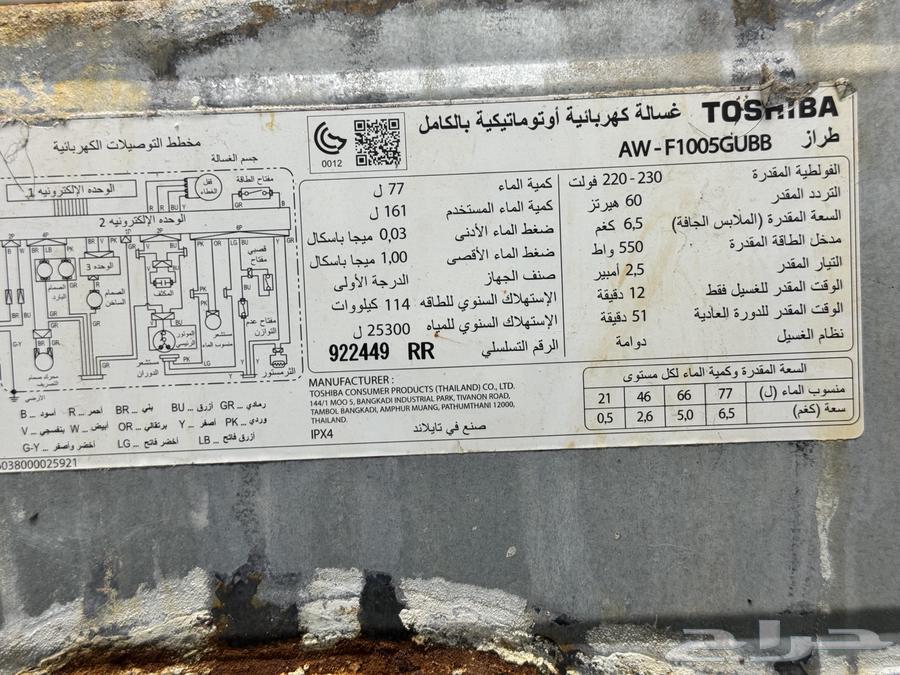 TOSHIBA غسالة كهربائية أوتوماتيكية بالكامل
طراز AW-F1005GUBB
الفولطية المقدرة 220-230 فولت
التردد المقدر 60 هيرتز
السعة المقدرة (الملابس الجافة) 6,5 كغم
مدخل الطاقة المقدرة 550 واط
التيار المقدر 2,5 أمبير
الوقت المقدر للغسيل فقط 12 دقيقة
الوقت المقدر للدورة العادية 51 دقيقة
نظام الغسيل دوامة
كمية الماء 77 ل
كمية الماء المستخدم 161 ل
ضغط الماء الأدنى 0,03 ميجا باسكال
ضغط الماء الأقصى 1,00 ميجا باسكال
صنف الجهاز الدرجة الأولى
الإستهلاك السنوي للطاقه 114 كيلووات
الإستهلاك السنوي للمياه 25300 ل
الرقم التسلسلي 922449 RR
السعة المقدرة وكمية الماء لكل مستوى
منسوب الماء (ل) 77 66 46 21
سعة (كغم) 6,5 5,0 2,6 0,5
0012
MANUFACTURER :
TOSHIBA CONSUMER PRODUCTS (THAILAND) CO., LTD.
144/1 MOO 5, BANGKADI INDUSTRIAL PARK, TIVANON ROAD,
TAMBOL BANGKADI, AMPHUR MUANG, PATHUMTHANI 12000,
THAILAND.
IPX4 صنع في تايلاند
مخطط التوصيلات الكهربائية
جسم الغسالة
مفتاح الطاقة
قفل الغطاء
الوحده الإلكترونيه 1
الوحده الإلكترونيه 2
الوحده 3
قصبي مفتاح
الصمام البارد
الصمام الساخن
المكثف
الموتور الرئيسي
مستشعر منسوب الماء
مفتاح عدم التوازن
مستشعر الدوران
محرك صمام التصريف
الثرمستور
الأرضي
B ... أسود R ... أحمر BR ... بني BU ... أزرق GR ... رمادي
V ... بنفسجي W ... أبيض OR ... برتقالي Y ... أصفر PK ... وردي
G-Y ... أخضر وأصفر LG ... أخضر فاتح LB ... أزرق فاتح
6038000025921
حراج